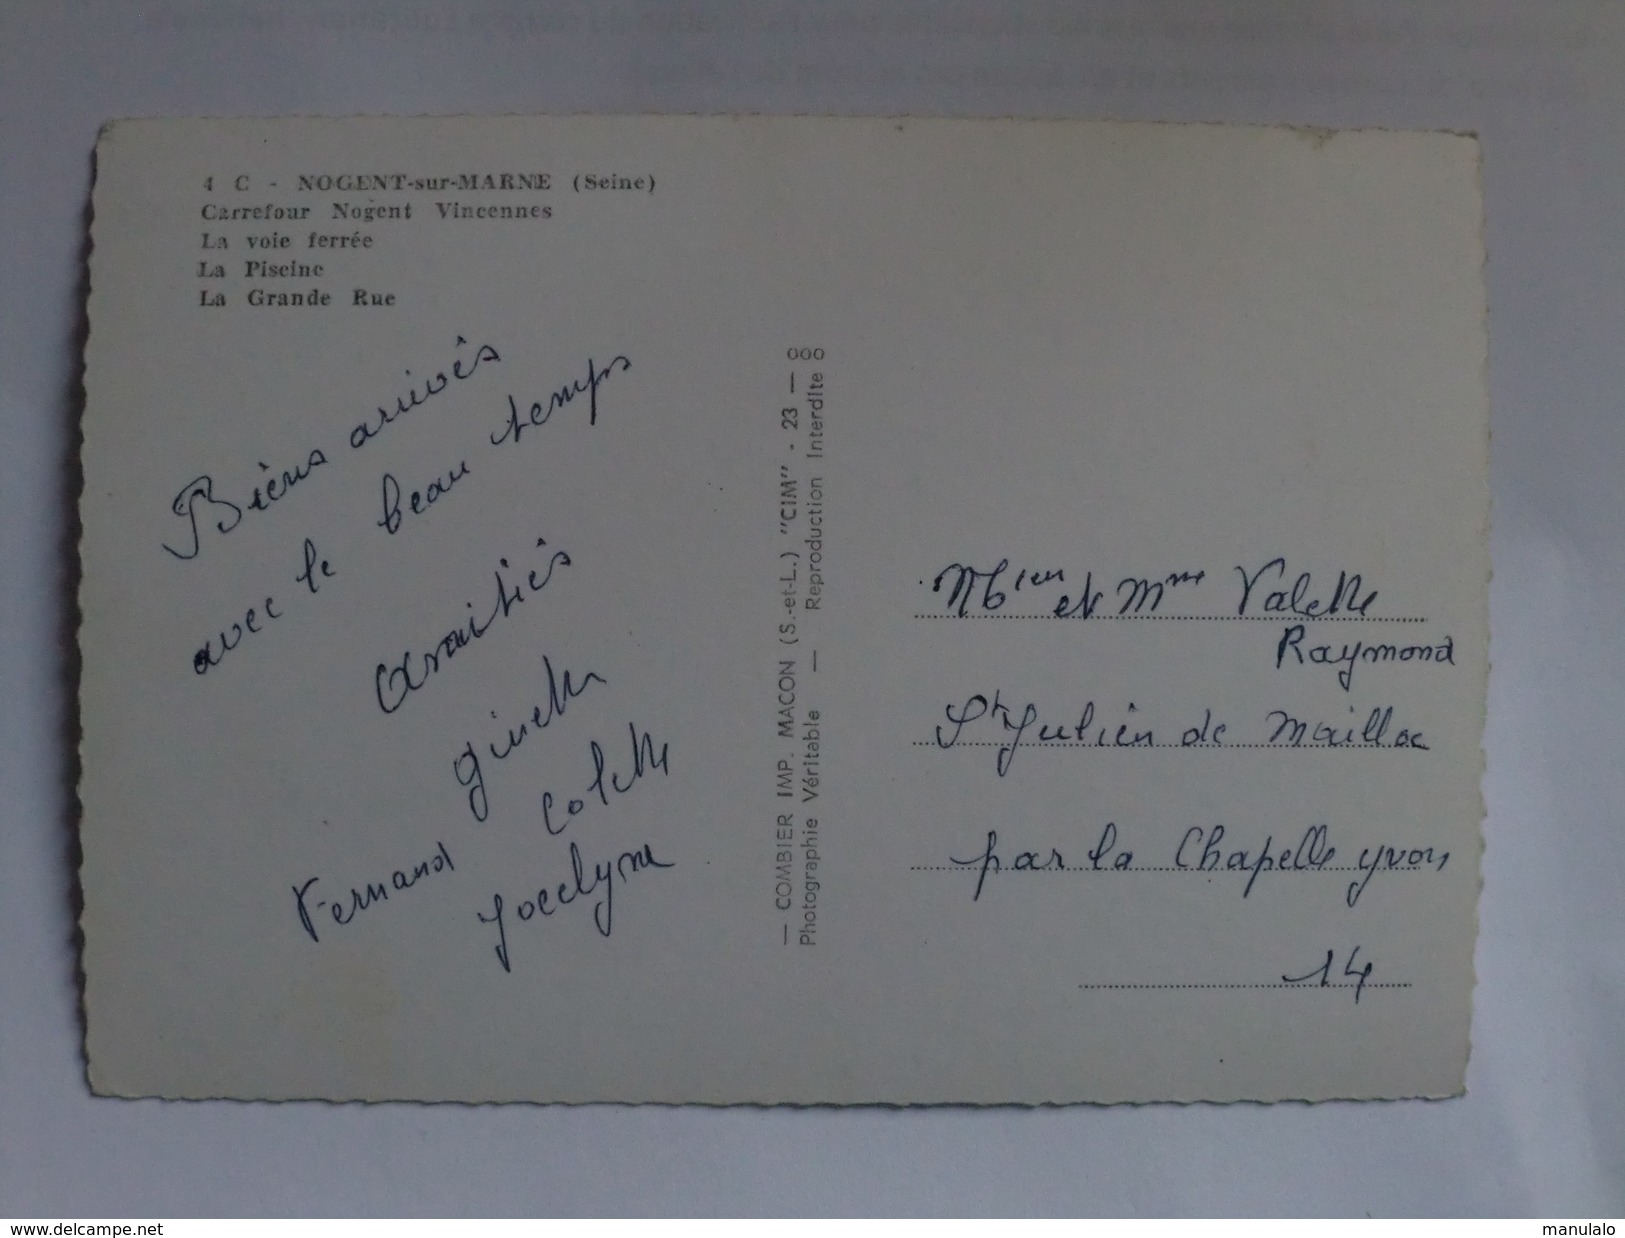 4 C - NOGENT-sur-MARNE (Seine)
Carrefour Nogent Vincennes
La voie ferrée
La Piscine
La Grande Rue
Biens arrivés
avec le beau temps
amitiés
ginette
Colette
Fernand
Jocelyne
— COMBIER IMP. MACON (S.-et-L.) "CIM" - 23 — 000
Photographie Véritable — Reproduction Interdite
et Mme Valette
Raymond
St Julien de Mailloc
par la Chapelle yvon
14
www.delcampe.net
manulalo